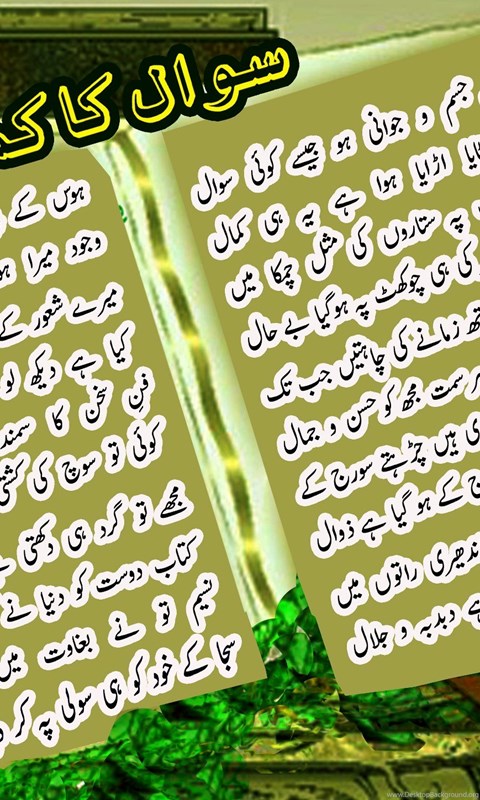 سوال کا
جسم و جوانی ہو جیسے کوئی سوال
اڑایا ہوا ہے یہ ہی کمال
پہ ستاروں کی مثل چمکا میں
کی ہی چوکھٹ پہ ہوگیا بے حال
زمانے کی چاہتیں جب تک
سمت مجھ کو حسن و جمال
ہیں چڑھتے سورج کے
کے ہو گیا ہے ذوال
راتوں میں
دبدبہ و جلال
ہوس کے
وجود میرا
میرے شعور کے
کیا ہے دیکھ لو
فنِ سخن کا سمندر
کوئی تو سوچ کی کشتی
مجھے تو گرد ہی دکھتی
کتاب دوست کو دنیا نے
نسیم تو نے بغاوت میں
سجا کے خود کو ہی سولی پہ کر
www.DesktopBackground.org